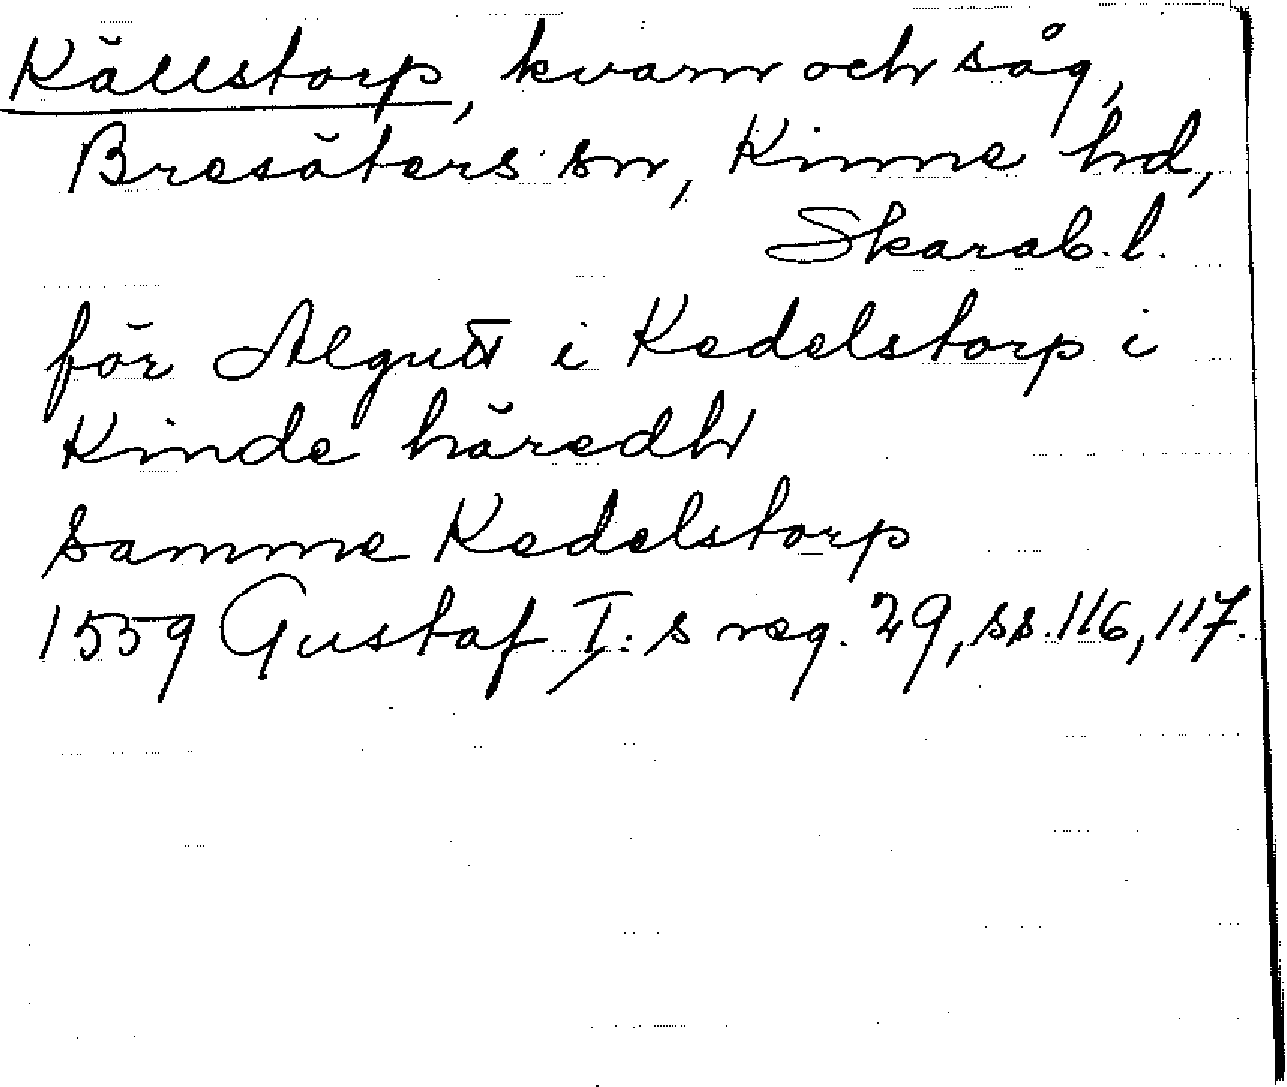 Källstorp, kvarn och såg,
Bresäters sn, Kinne hd,
Skarab. l.
för Algutt i Kedelstorp i
Kinde häredh
samme Kedelstorp
1559 Gustaf I:s reg. 29, ss. 116, 117.